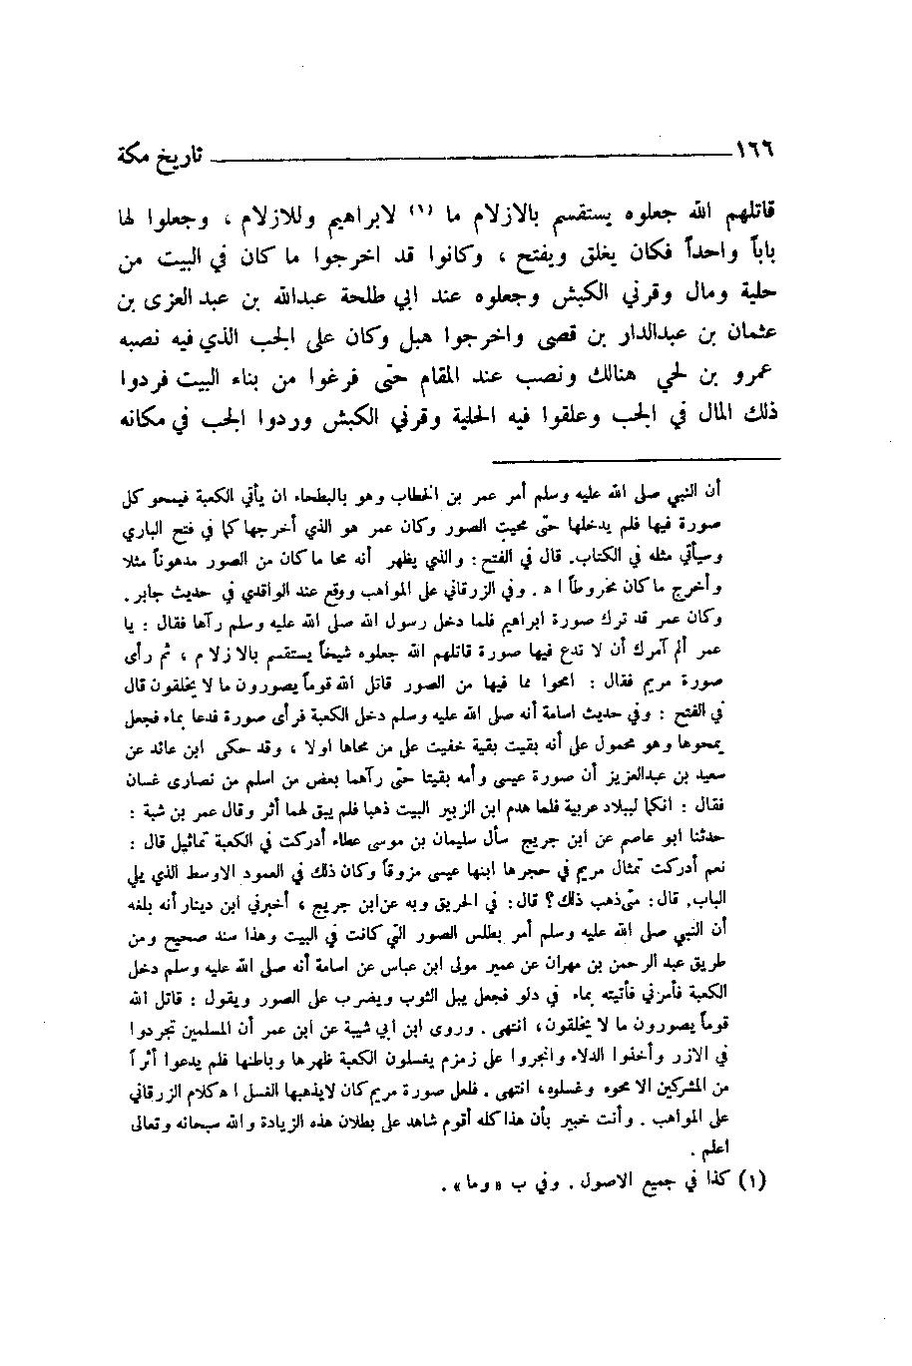 ١٦٦ ــــــــــــــــــــ تاريخ مكة
قاتلهم الله جعلوه يستقسم بالازلام ما (١) لابراهيم وللازلام ، وجعلوا لها
باباً واحداً فكان يغلق ويفتح ، وكانوا قد اخرجوا ما كان في البيت من
حلية ومال وقرني الكبش وجعلوه عند ابي طلحة عبدالله بن عبد العزى بن
عثمان بن عبدالدار بن قصي واخرجوا هبل وكان على الجب الذي فيه نصبه
عمرو بن لحي هنالك ونصب عند المقام حتى فرغوا من بناء البيت فردوا
ذلك المال في الجب وعلقوا فيه الحلية وقرني الكبش وردوا الجب في مكانه
أن النبي صلى الله عليه وسلم أمر عمر بن الخطاب وهو بالبطحاء ان يأتي الكعبة فيمحو كل
صورة فيها فلم يدخلها حتى محيت الصور وكان عمر هو الذي أخرجها كما في فتح الباري
وسيأتي مثله في الكتاب. قال في الفتح : والذي يظهر أنه محا ما كان من الصور مدهوناً مثلا
وأخرج ما كان مخروطاً ا ه . وفي الزرقاني على المواهب ووقع عند الواقدي في حديث جابر .
وكان عمر قد ترك صورة ابراهيم فلما دخل رسول الله صلى الله عليه وسلم رآها فقال : يا
عمر ألم آمرك أن لا تدع فيها صورة قاتلهم الله جعلوه شيخاً يستقسم بالازلام ، ثم رأى
صورة مريم فقال : امحوا مما فيها من الصور قاتل الله قوماً يصورون ما لا يخلقون قال
في الفتح : وفي حديث اسامة أنه صلى الله عليه وسلم دخل الكعبة فرأى صورة فدعا بماء فجعل
يمحوها وهو محمول على أنه بقيت بقية خفيت على من محاها اولا ، وقد حكى ابن عائد عن
سعيد بن عبدالعزيز أن صورة عيسى وأمه بقيتا حتى رآهما بعض من اسلم من نصارى غسان
فقال : انكما لببلاد عربية فلما هدم ابن الزبير البيت ذهبا فلم يبق لهما أثر وقال عمر بن شبة :
حدثنا ابو عاصم عن ابن جريج سأل سليمان بن موسى عطاء أدركت في الكعبة تماثيل قال :
نعم أدركت تمثال مريم في حجرها ابنها عيسى مزوقاً وكان ذلك في العمود الاوسط الذي يلي
الباب. قال: متى ذهب ذلك؟ قال: في الحريق وبه عن ابن جريج ، أخبرني ابن دينار أنه بلغه
أن النبي صلى الله عليه وسلم أمر بطلس الصور التي كانت في البيت وهذا سند صحيح ومن
طريق عبد الرحمن بن مهران عن عمير مولى ابن عباس عن اسامة أنه صلى الله عليه وسلم دخل
الكعبة فأمرني فأتيته بماء في دلو فجعل يبل الثوب ويضرب على الصور ويقول : قاتل الله
قوماً يصورون ما لا يخلقون، انتهى . وروى ابن ابي شيبة عن ابن عمر أن المسلمين تجردوا
في الازر وأخذوا الدلاء وانجروا على زمزم يغسلون الكعبة ظهرها وباطنها فلم يدعوا أثراً
من المشركين الا محوه وغسلوه، انتهى . فلعل صورة مريم كان لايذهبها الغسل ا ه كلام الزرقاني
على المواهب . وأنت خبير بأن هذا كله أقوم شاهد على بطلان هذه الزيادة والله سبحانه وتعالى
اعلم .
(١) كذا في جميع الاصول . وفي ب «وما» .